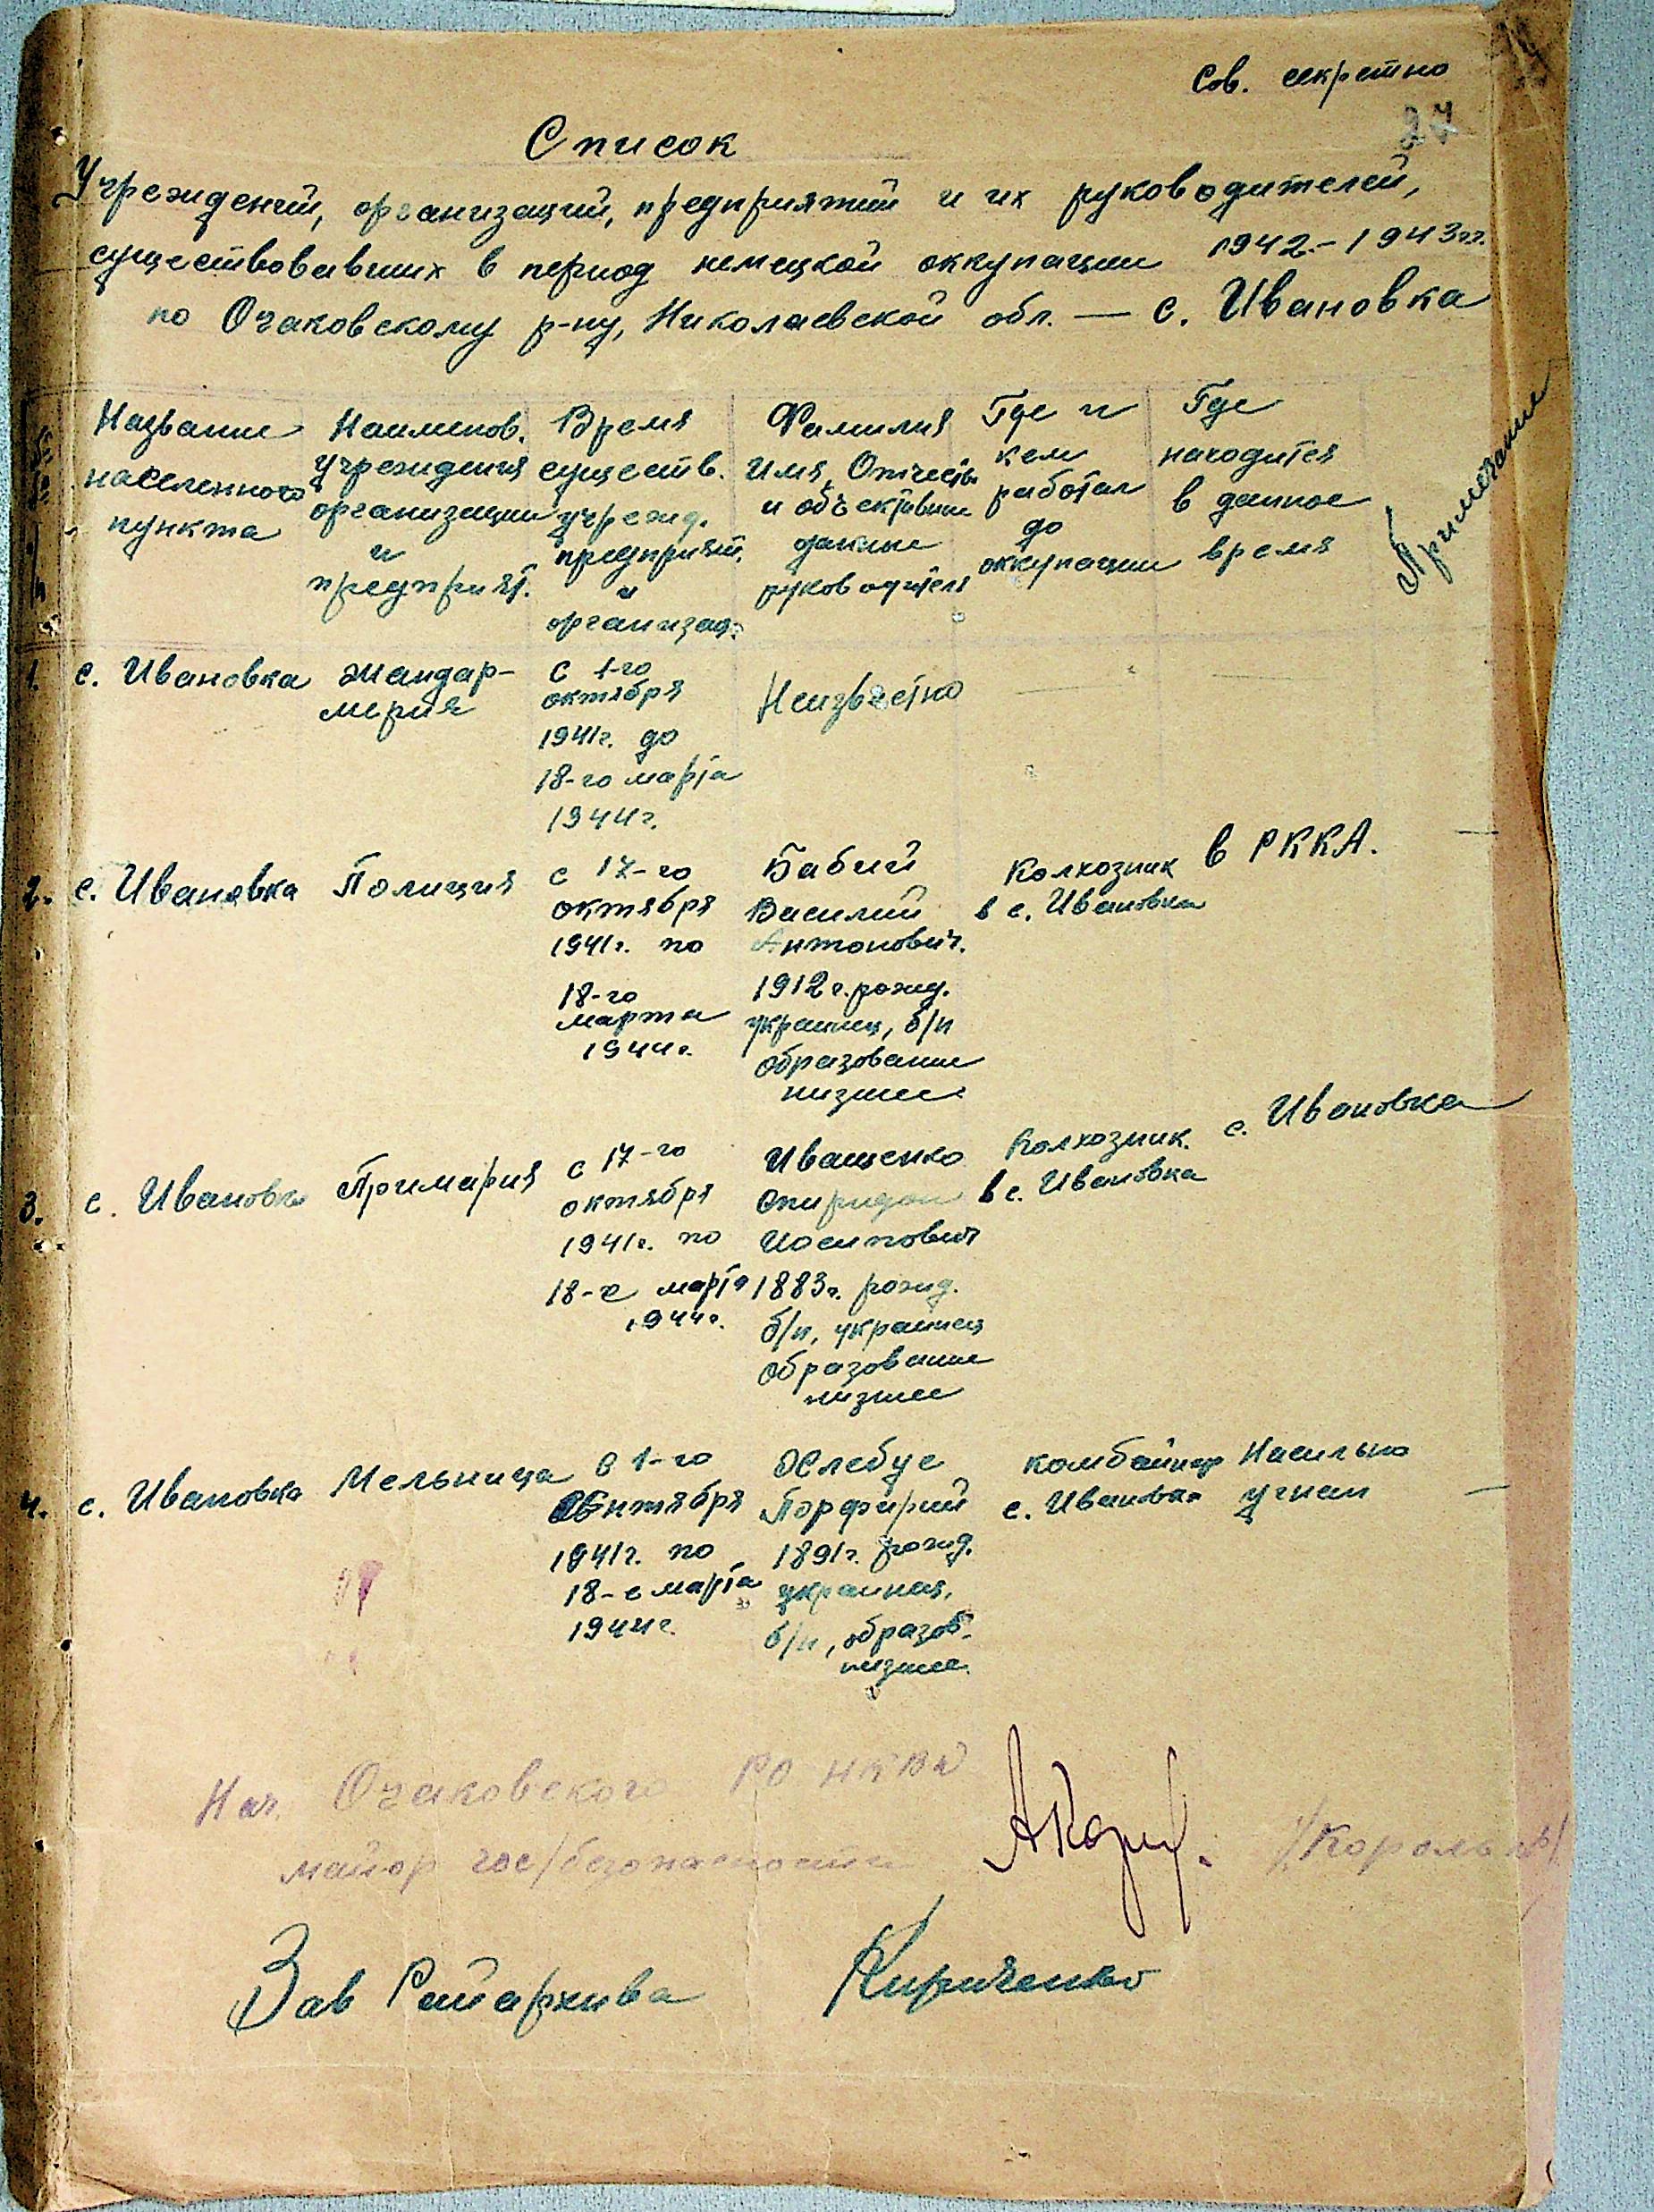 Сов. секретно
27
Список
Учреждений, организаций, предприятий и их руководителей,
существовавших в период немецкой оккупации 1942-1943гг.
по Очаковскому р-ну, Николаевской обл. — с. Ивановка
№№ п/п
Название населенного пункта
Наименов. учреждения организации и предприят.
Время существ. учрежд. предприят. и организац.
Фамилия Имя, Отчеств. и объективные данные руководителя
Где и кем работал до оккупации
Где находится в данное время
Примечание
1. с. Ивановка Жандар-
мерия
с 1-го
октября
1941г. до
18-го марта
1944г.
Неизвестно — —
2. с. Ивановка Полиция
с 17-го
октября
1941г. по
18-го
марта
1944г.
Бабий
Василий
Антонович.
1912г. рожд.
украинец, б/п
образование
низшее
Колхозник
в с. Ивановка
в РККА. —
3. с. Ивановка Примария
с 17-го
октября
1941г. по
18-е марта
1944г.
Иващенко
Спиридон
Иосипович
1883г. рожд.
б/п, украинец
образование
низшее
Колхозник.
в с. Ивановка
с. Ивановка
4. с. Ивановка Мельница
с 1-го
октября
1941г. по
18-е марта
1944г.
Хлебус
Порфирий
1891г. рожд.
украинец,
б/п, образов.
низшее.
комбайнер
с. Ивановка
Насильно
угнан —
Нач. Очаковского РО НКВД
майор гос/безопасности /Король/
Зав Райархива Кириченко